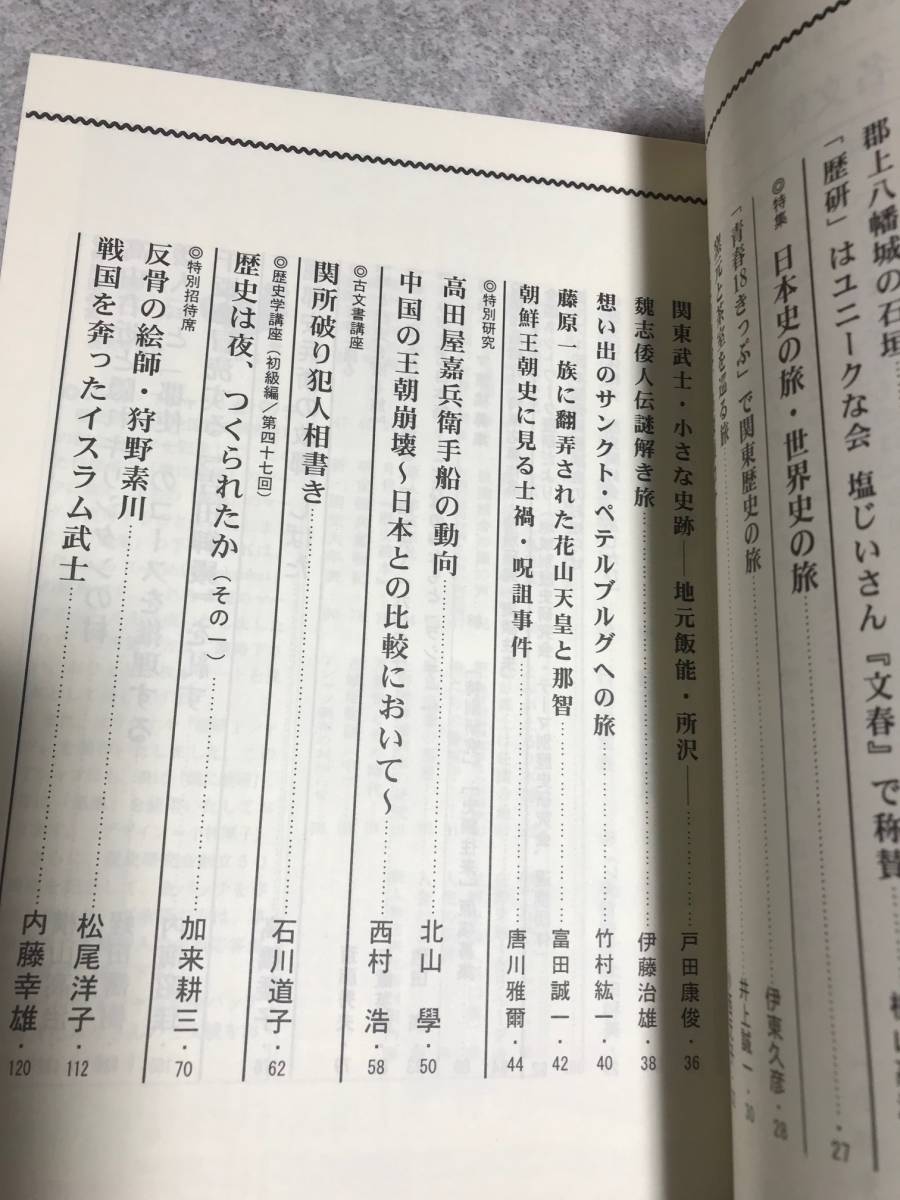 郡上八幡城の石垣
「歴研」はユニークな会 塩じいさん『文春』で称賛 27
◎特集 日本史の旅・世界史の旅 伊東久彦・28
「青春18きっぷ」で関東歴史の旅 井上誠一・30
を巡る旅
関東武士・小さな史跡―地元飯能・所沢― 戸田康俊・36
魏志倭人伝謎解き旅 伊藤治雄・38
想い出のサンクト・ペテルブルグへの旅 竹村紘一・40
藤原一族に翻弄された花山天皇と那智 富田誠一・42
朝鮮王朝史に見る士禍・呪詛事件 唐川雅爾・44
◎特別研究
高田屋嘉兵衛手船の動向 北山 學・50
中国の王朝崩壊〜日本との比較において〜 西村 浩・58
◎古文書講座
関所破り犯人相書き 石川道子・62
◎歴史学講座（初級編／第四十七回）
歴史は夜、つくられたか（その一） 加来耕三・70
◎特別招待席
反骨の絵師・狩野素川 松尾洋子・112
戦国を奔ったイスラム武士 内藤幸雄・120